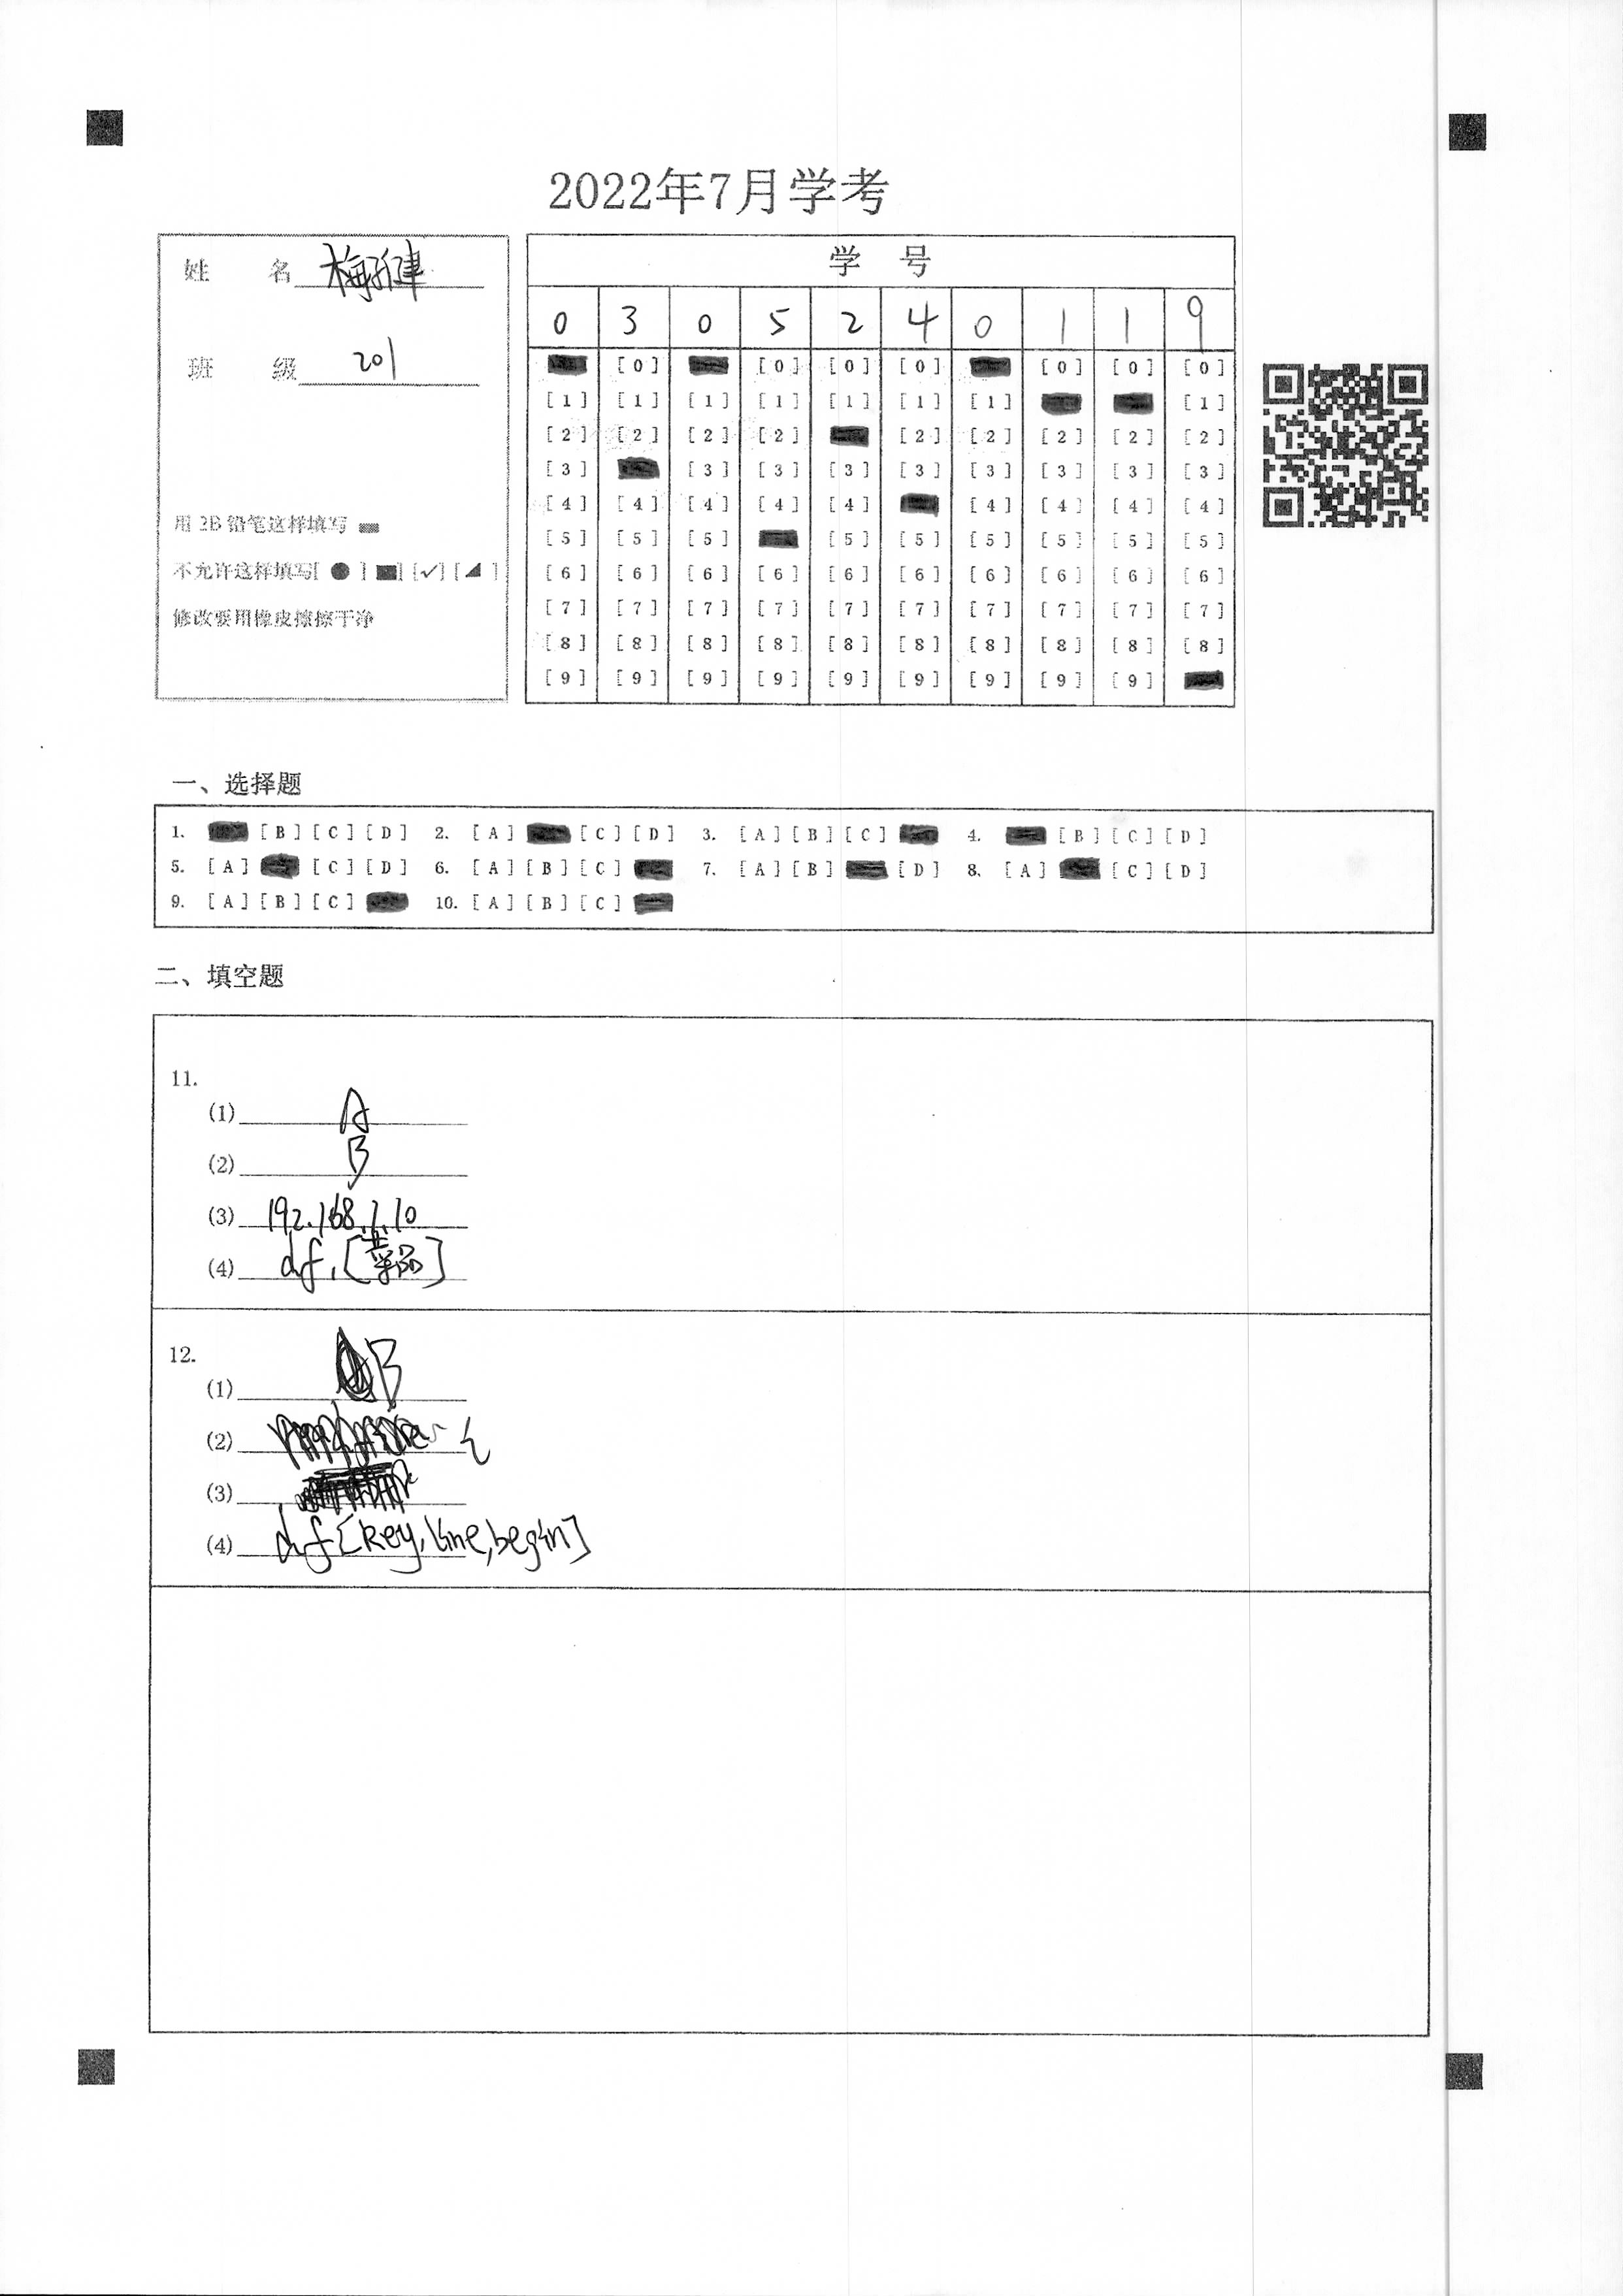 2022年7月学考
姓 名 梅
班 级 201
用2B铅笔这样填写
不允许这样填写[●] [■] [✓] [◢]
修改要用橡皮擦擦干净
学 号
0 3 0 5 2 4 0 1 1 9
[0] [0] [0] [0] [0] [0]
[1] [1] [1] [1] [1] [1] [1] [1]
[2] [2] [2] [2] [2] [2] [2] [2] [2]
[3] [3] [3] [3] [3] [3] [3] [3] [3]
[4] [4] [4] [4] [4] [4] [4] [4] [4]
[5] [5] [5] [5] [5] [5] [5] [5] [5]
[6] [6] [6] [6] [6] [6] [6] [6] [6] [6]
[7] [7] [7] [7] [7] [7] [7] [7] [7] [7]
[8] [8] [8] [8] [8] [8] [8] [8] [8] [8]
[9] [9] [9] [9] [9] [9] [9] [9] [9]
一、选择题
1. [B] [C] [D] 2. [A] [C] [D] 3. [A] [B] [C] 4. [B] [C] [D]
5. [A] [C] [D] 6. [A] [B] [C] 7. [A] [B] [D] 8. [A] [C] [D]
9. [A] [B] [C] 10. [A] [B] [C]
二、填空题
11.
(1) A
(2) B
(3) 192.168.1.10
(4) df,[菜品]
12.
(1) B
(2) i
(3)
(4) df[key,line,begin]